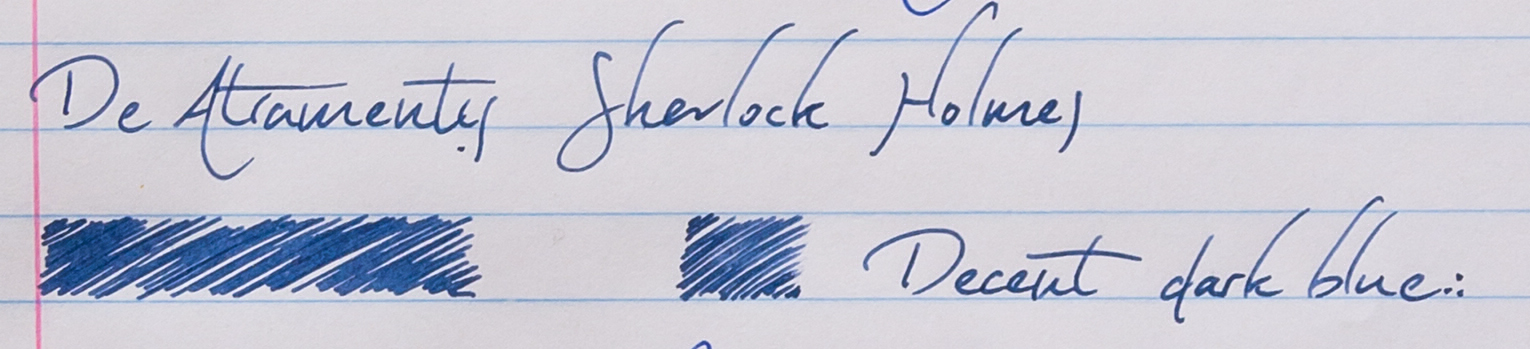 De Atramentis Sherlock Holmes
Decent dark blue...